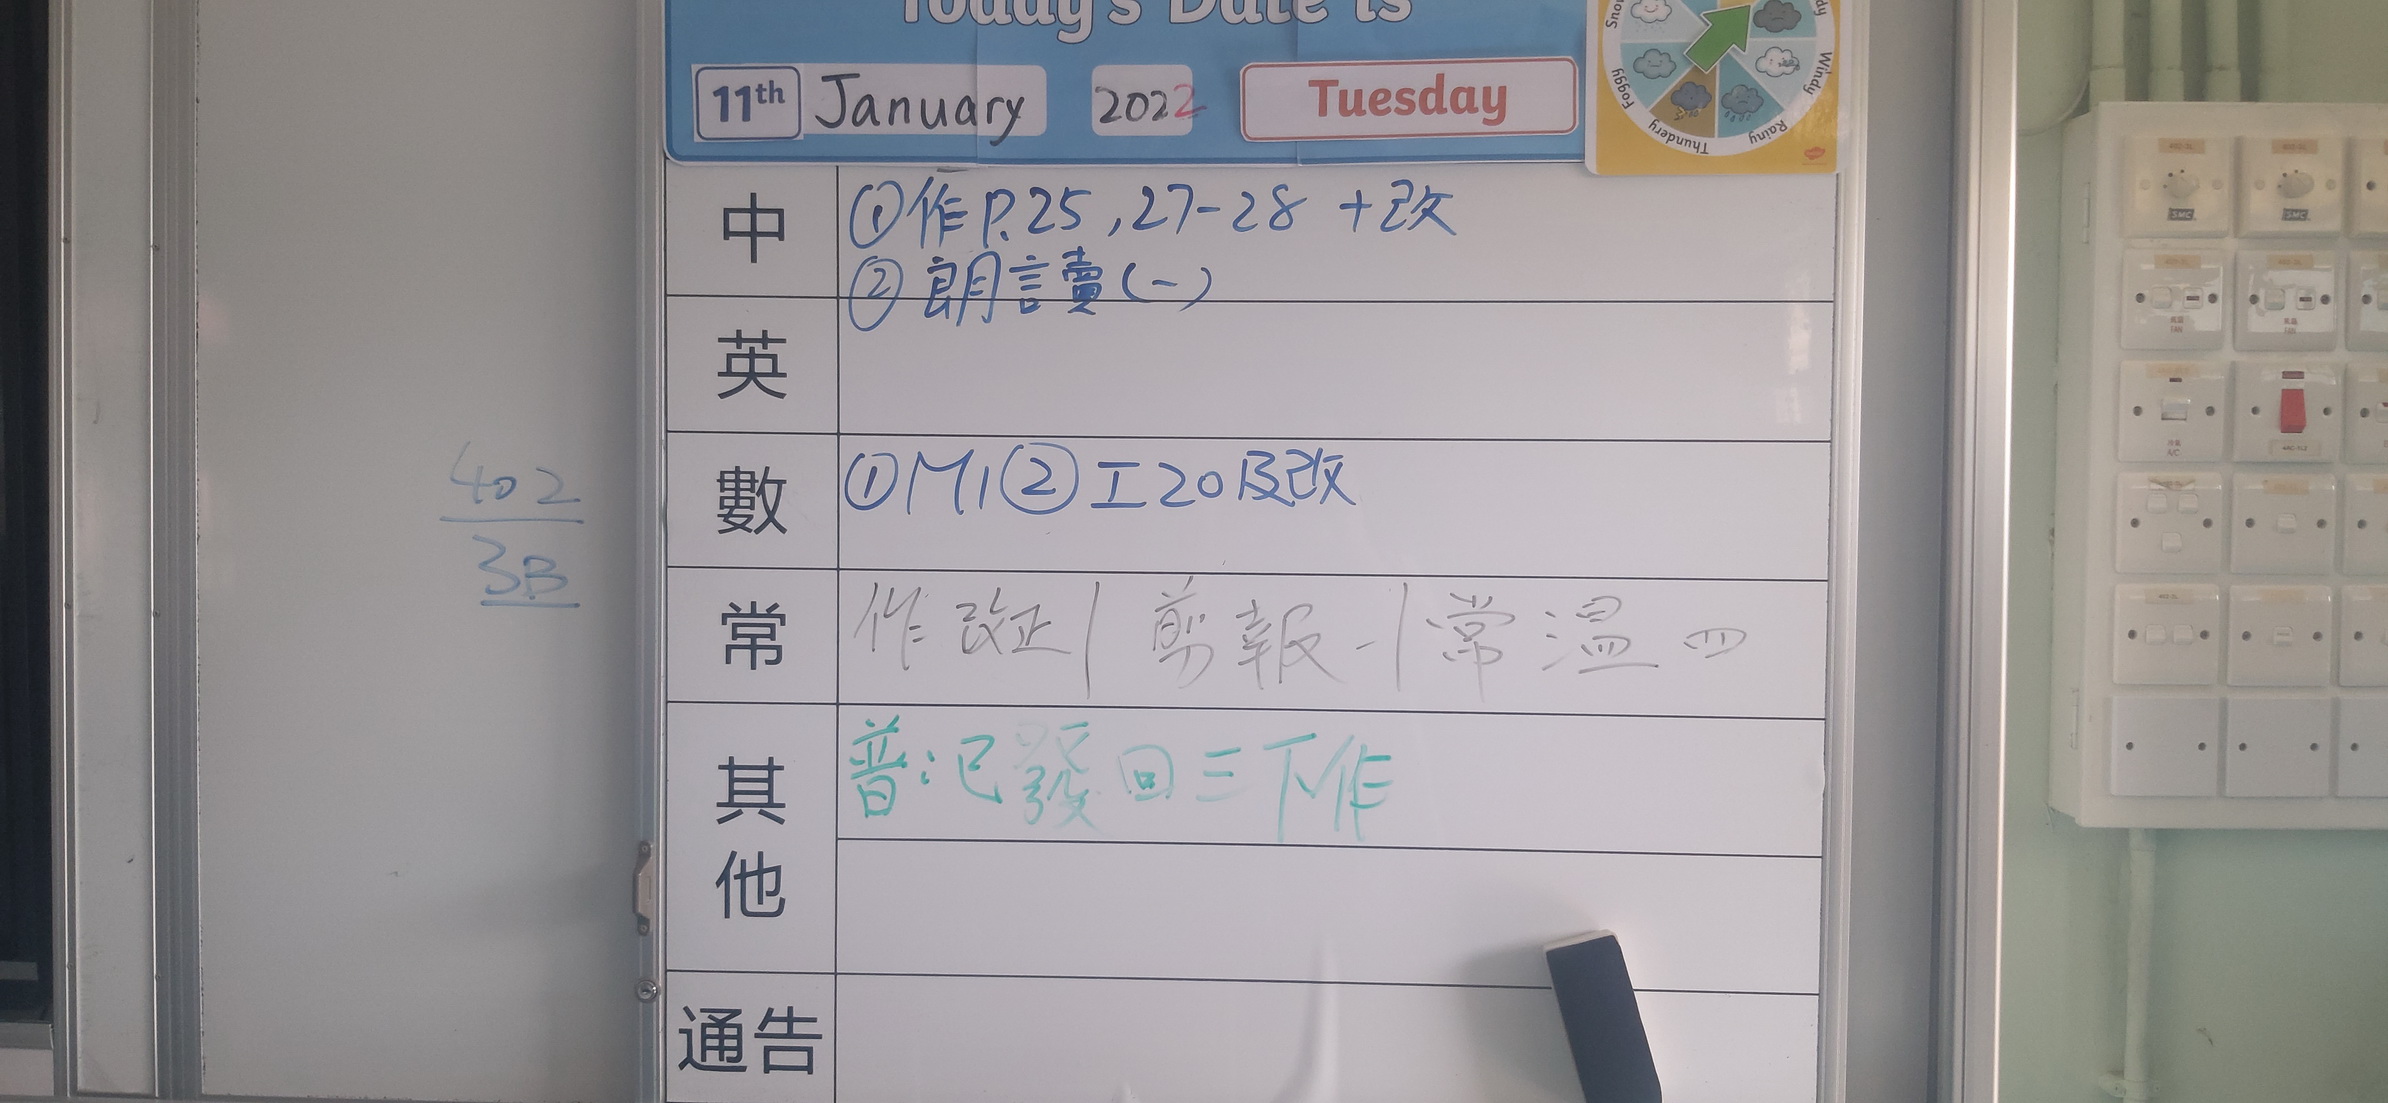 Today's Date is
11th January 2022 Tuesday
Foggy Thundery Rainy Windy
中 ①作P.25,27-28 +改
②朗讀(一)
英
數 ①M1②工20及改
402
3B
常 作改正| 剪報一|常溫四
其他 普:已發回三下作
通告
SMC SMC
FAN FAN
A/C